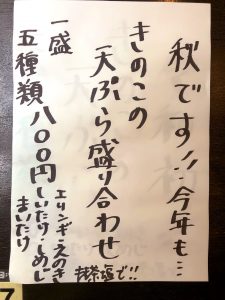 秋です!!今年も…
きのこの
天ぷら盛り合わせ
一盛
五種類八〇〇円
エリンギ・えのき
しいたけ・しめじ
まいたけ
抹茶塩で!!